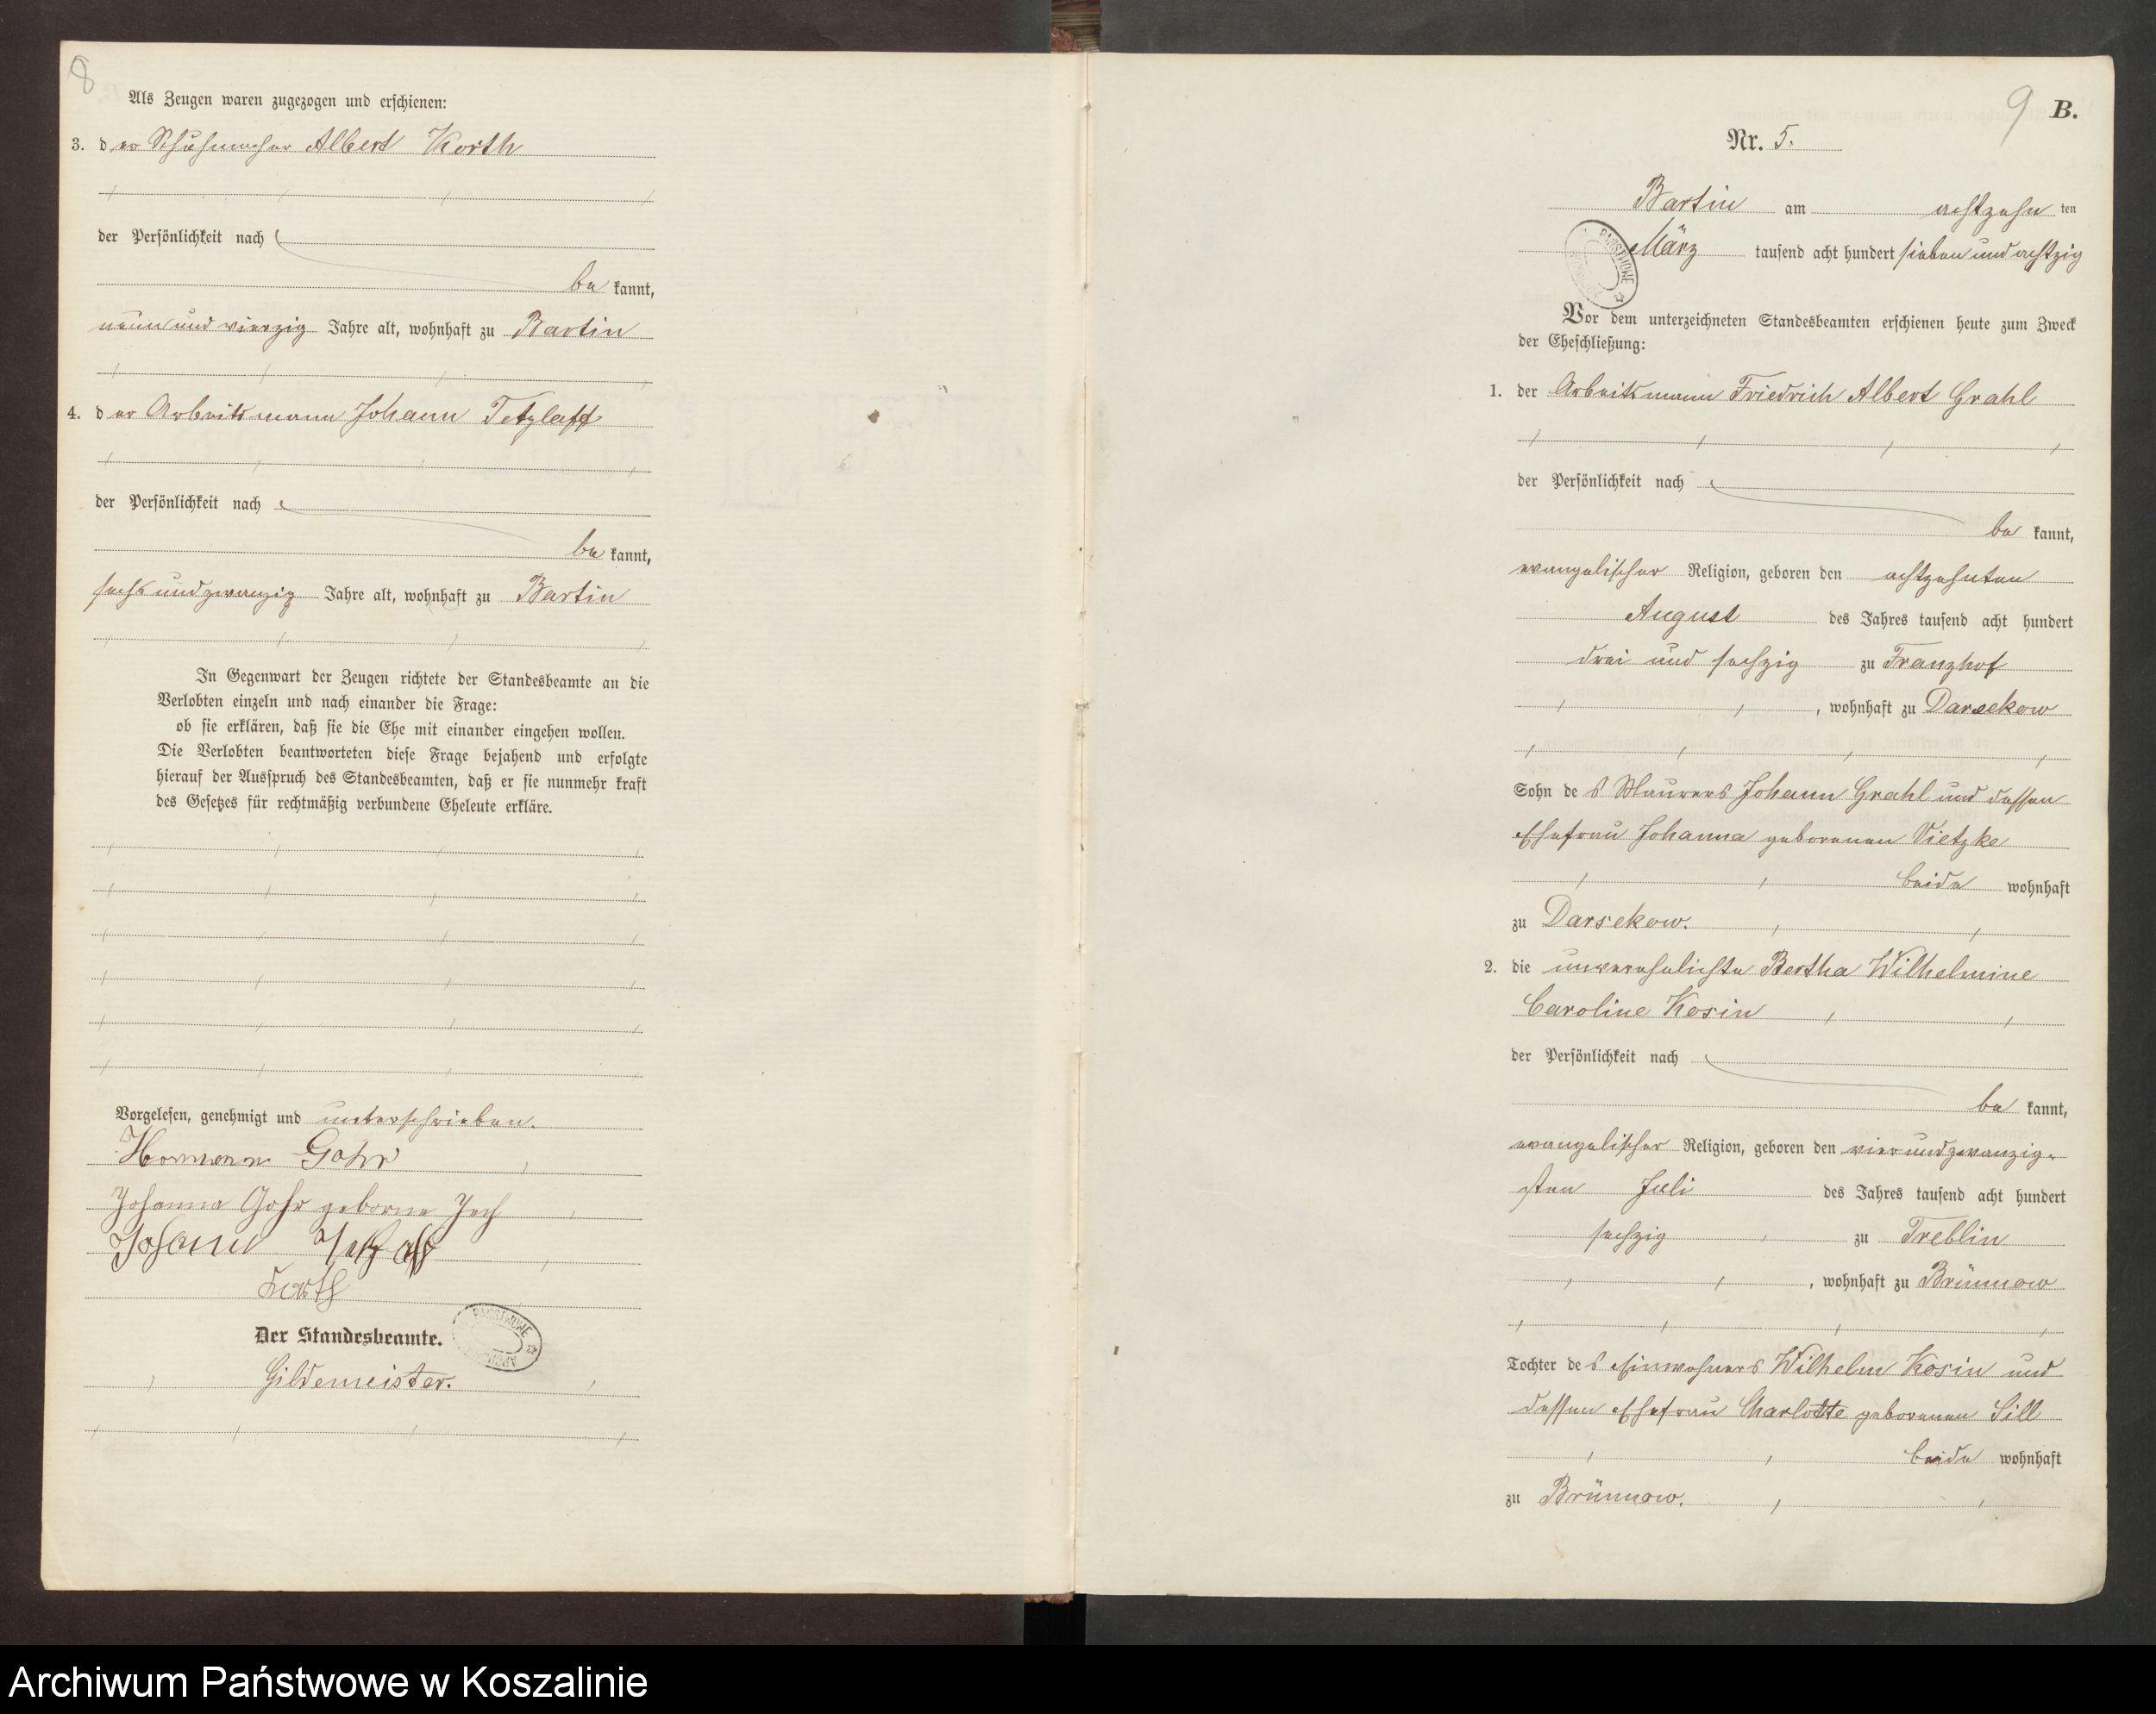 8
Als Zeugen waren zugezogen und erschienen:
3. der Schuhmacher Albert Korth
der Persönlichkeit nach
be kannt,
neun und vierzig Jahre alt, wohnhaft zu Bartin
4. der Arbeitsmann Johann Tetzlaff
der Persönlichkeit nach
be kannt,
sechs und zwanzig Jahre alt, wohnhaft zu Bartin
In Gegenwart der Zeugen richtete der Standesbeamte an die
Verlobten einzeln und nach einander die Frage:
ob sie erklären, daß sie die Ehe mit einander eingehen wollen.
Die Verlobten beantworteten diese Frage bejahend und erfolgte
hierauf der Ausspruch des Standesbeamten, daß er sie nunmehr kraft
des Gesetzes für rechtmäßig verbundene Eheleute erkläre.
Vorgelesen, genehmigt und unterschrieben.
Hermann Gohr
Johanna Gohr geborne Jech
Johann Tetzlaff
Korth
Der Standesbeamte.
PAŃSTWOWE
Gildemeister.
9 B.
Nr. 5.
Bartin am achtzehn ten
März tausend acht hundert sieben und achtzig
PAŃSTWOWE
Vor dem unterzeichneten Standesbeamten erschienen heute zum Zweck
der Eheschließung:
1. der Arbeitsmann Friedrich Albert Grahl
der Persönlichkeit nach
be kannt,
evangelischer Religion, geboren den achtzehnten
August des Jahres tausend acht hundert
drei und sechzig zu Franzhof
, wohnhaft zu Darsekow
Sohn des Maurers Johann Grahl und dessen
Ehefrau Johanna geborenen Vietzke
beide wohnhaft
zu Darsekow.
2. die unverehelichte Bertha Wilhelmine
Caroline Kosin
der Persönlichkeit nach
be kannt,
evangelischer Religion, geboren den vier und zwanzig-
sten Juli des Jahres tausend acht hundert
sechzig zu Treblin
, wohnhaft zu Brünnow
Tochter des Einwohners Wilhelm Kosin und
dessen Ehefrau Charlotte geborenen Sill
beide wohnhaft
zu Brünnow.
Archiwum Państwowe w Koszalinie